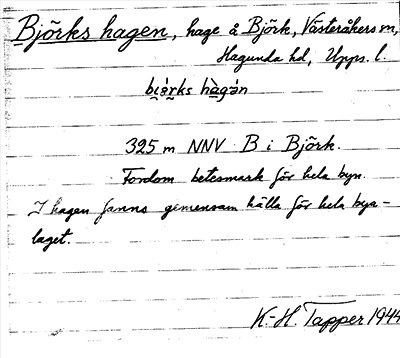 Björks hagen, hage å Björk, Västeråkers sn,
Hagunda hd, Upps. l.
bi̯ö́rks hàgàn
325 m NNV B i Björk.
Fordom betesmark för hela byn.
I hagen fanns gemensam källa för hela bya-
laget.
K.-H. Tapper 1944